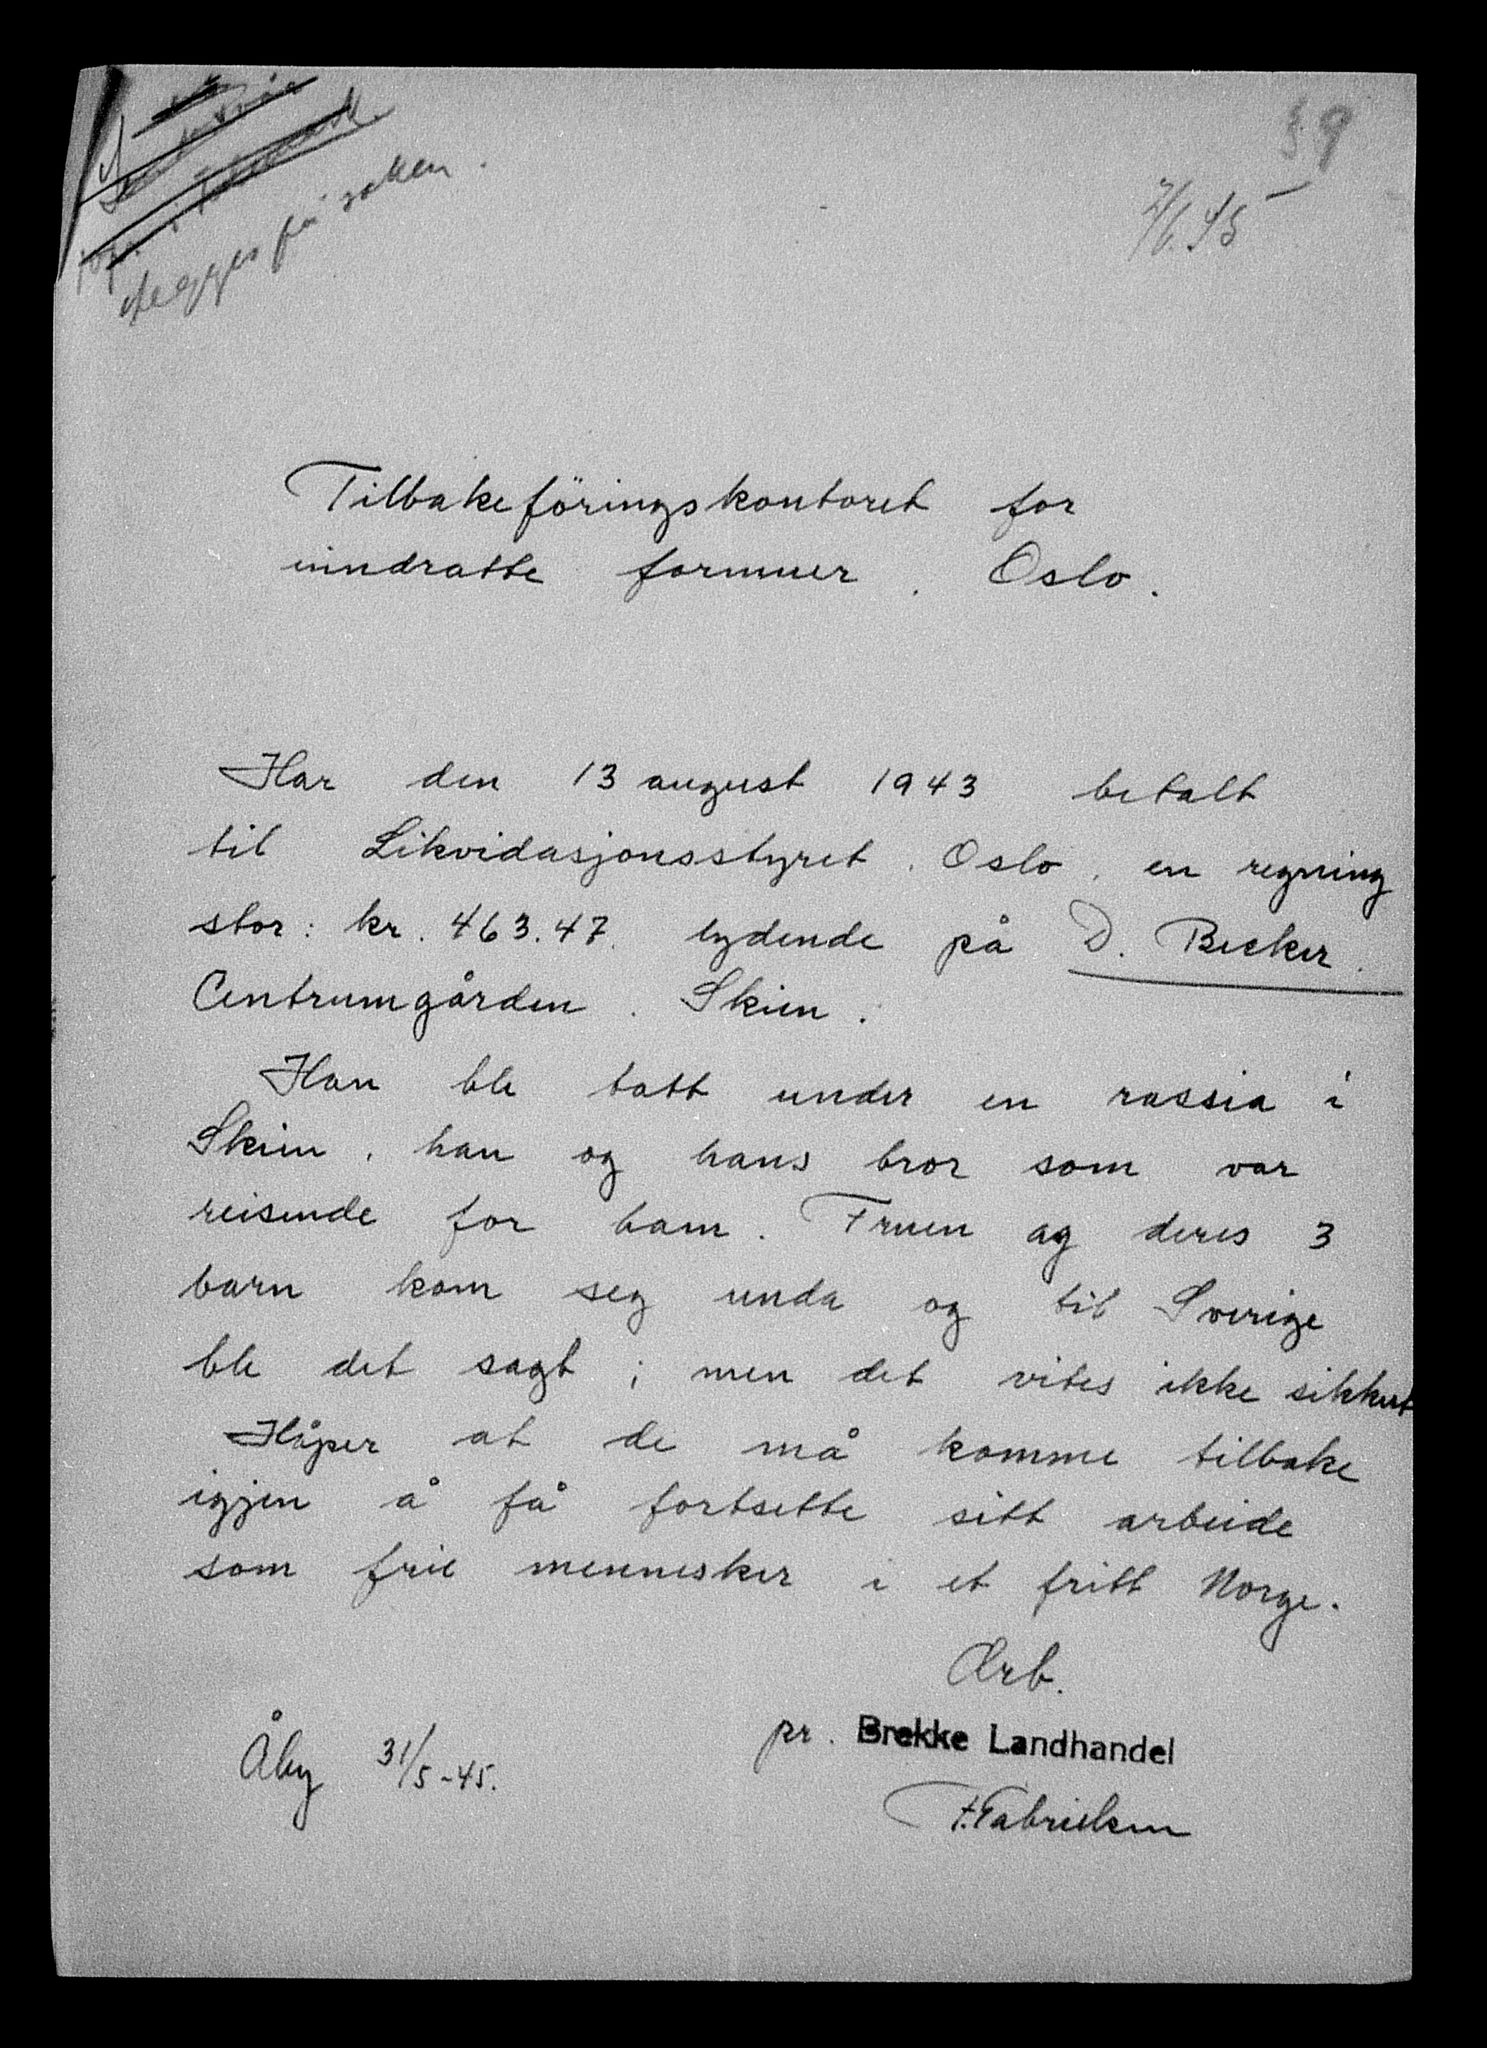 Legges på saken.
59
2/6.45
Tilbakeföringskontoret for
inndratte formuer. Oslo.
Har den 13 august 1943 betalt
til Likvidasjonsstyret. Oslo. en regning
stor: kr. 463.47. lydende på D. Becker.
Centrumgården. Skien.
Han ble tatt under en rassia i
Skien, han og hans bror som var
reisende for ham. Fruen og deres 3
barn kom seg unda og til Sverige
ble det sagt; men det vites ikke sikkert
Håper at de må komme tilbake
igjen å få fortsette sitt arbeide
som frie mennesker i et fritt Norge.
Ærb.
pr. Brekke Landhandel
Åby 31/5-45.